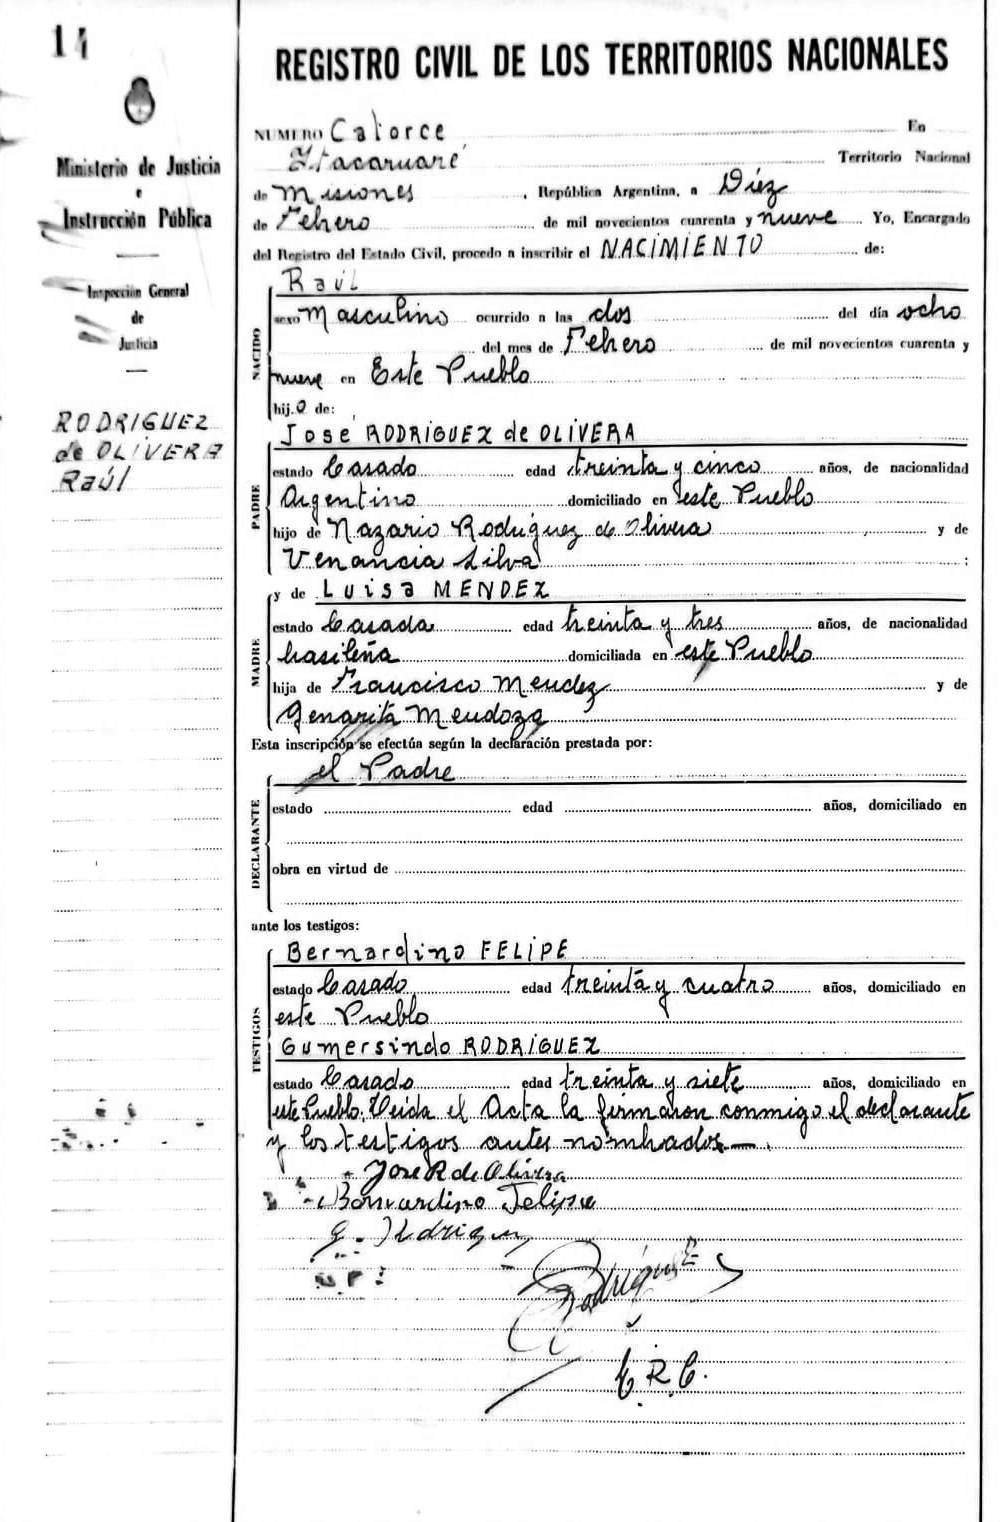 14
Ministerio de Justicia
e
Instrucción Pública
Inspección General
de
Justicia
RODRIGUEZ
de OLIVERA
Raúl
REGISTRO CIVIL DE LOS TERRITORIOS NACIONALES
NUMERO Catorce En
Itacaruaré Territorio Nacional
de Misiones, República Argentina, a Diéz
de Febrero de mil novecientos cuarenta y nueve Yo, Encargado
del Registro del Estado Civil, procedo a inscribir el NACIMIENTO de:
Raúl
NACIDO
sexo Masculino ocurrido a las dos del día ocho
del mes de Febrero de mil novecientos cuarenta y
nueve en Este Pueblo
hij.o de:
José RODRIGUEZ de OLIVERA
PADRE
estado Casado edad treinta y cinco años, de nacionalidad
Argentino domiciliado en este Pueblo
hijo de Nazario Rodriguez de Olivera y de
Venancia Silva
y de Luisa MENDEZ
MADRE
estado Casada edad treinta y tres años, de nacionalidad
brasileña domiciliada en este Pueblo
hija de Francisco Mendez y de
Genarita Mendoza
Esta inscripción se efectúa según la declaración prestada por:
el Padre
DECLARANTE
estado edad años, domiciliado en
obra en virtud de
ante los testigos:
Bernardino FELIPE
TESTIGOS
estado Casado edad treinta y cuatro años, domiciliado en
este Pueblo
Gumersindo RODRIGUEZ
estado Casado edad treinta y siete años, domiciliado en
este Pueblo. Leida el Acta la firmaron conmigo el declarante
y los testigos antes nombrados.—
Jose R de Olivera
Bernardino Felipe
Rodriguez
E. R. C.